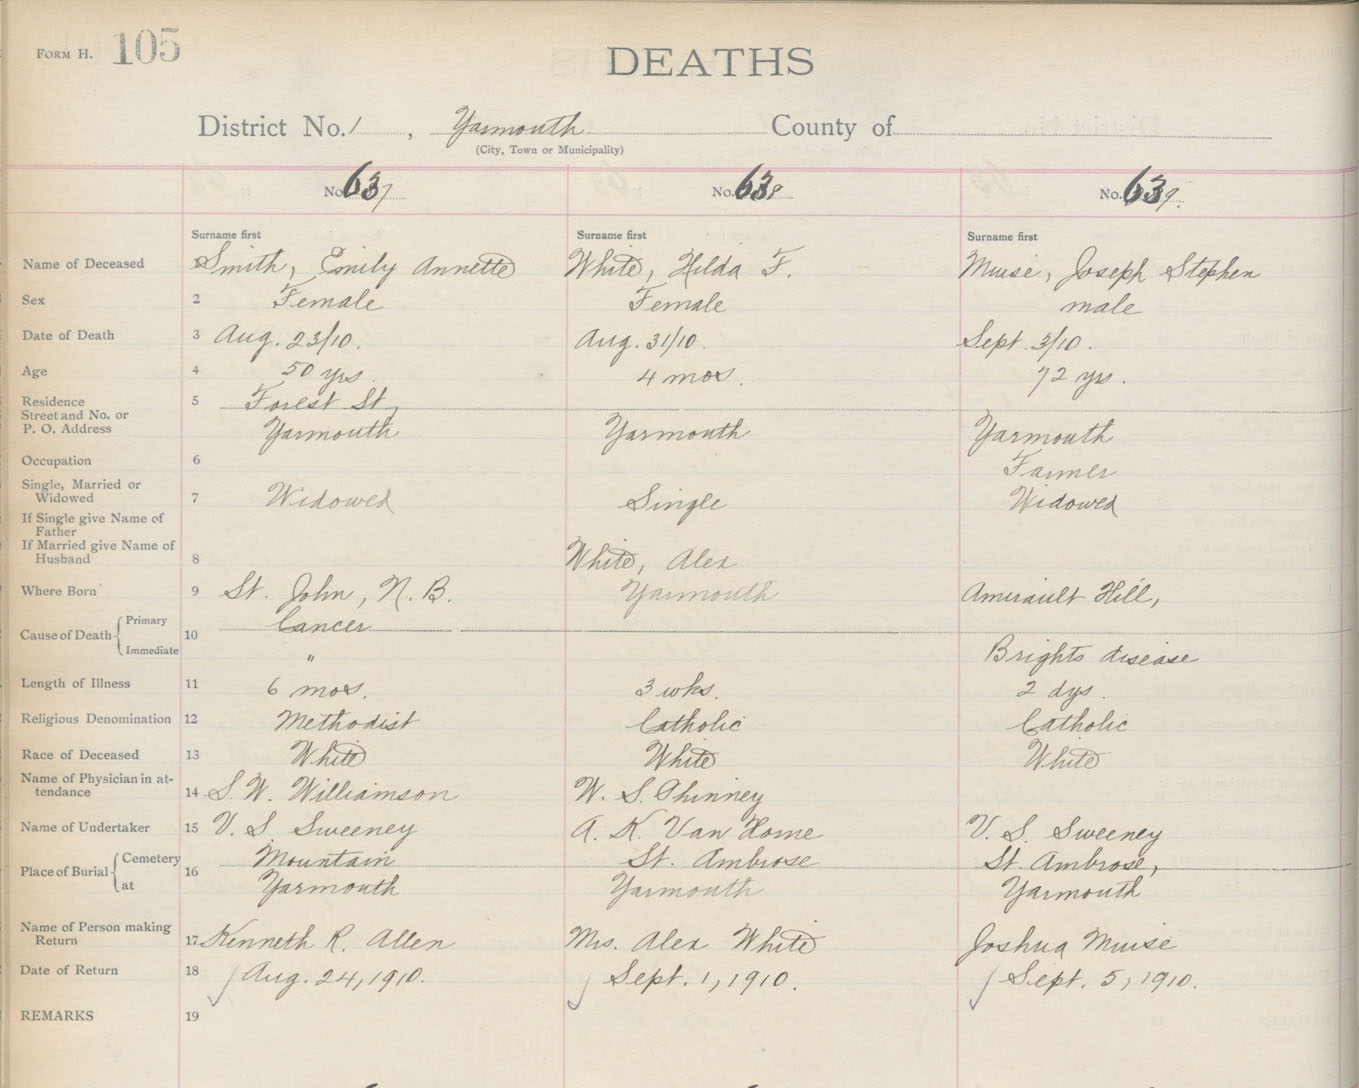 FORM H. 105
DEATHS
District No. 1, Yarmouth County of
(City, Town or Municipality)
No. 637 No. 638 No. 639.
Surname first Surname first Surname first
Name of Deceased 1 Smith, Emily Annette White, Hilda F. Muise, Joseph Stephen
Sex 2 Female Female male
Date of Death 3 Aug. 23/10. Aug. 31/10. Sept. 3/10.
Age 4 50 yrs. 4 mos. 72 yrs.
Residence 5 Forest St,
Street and No. or
P. O. Address Yarmouth Yarmouth Yarmouth
Occupation 6 Farmer
Single, Married or
Widowed 7 Widowed Single Widowed
If Single give Name of
Father
If Married give Name of
Husband 8 White, Alex
Where Born 9 St. John, N. B. Yarmouth Amirault Hill,
Cause of Death { Primary 10 Cancer
Immediate " Brights disease
Length of Illness 11 6 mos. 3 wks. 2 dys.
Religious Denomination 12 Methodist Catholic Catholic
Race of Deceased 13 White White White
Name of Physician in at-
tendance 14 S. W. Williamson W. S. Phinney
Name of Undertaker 15 V. S. Sweeney A. K. Van Horne V. S. Sweeney
Place of Burial { Cemetery 16 Mountain St. Ambrose St. Ambrose,
at Yarmouth Yarmouth Yarmouth
Name of Person making
Return 17 Kenneth R. Allen Mrs. Alex White Joshua Muise
Date of Return 18 Aug. 24, 1910. Sept. 1, 1910. Sept. 5, 1910.
REMARKS 19